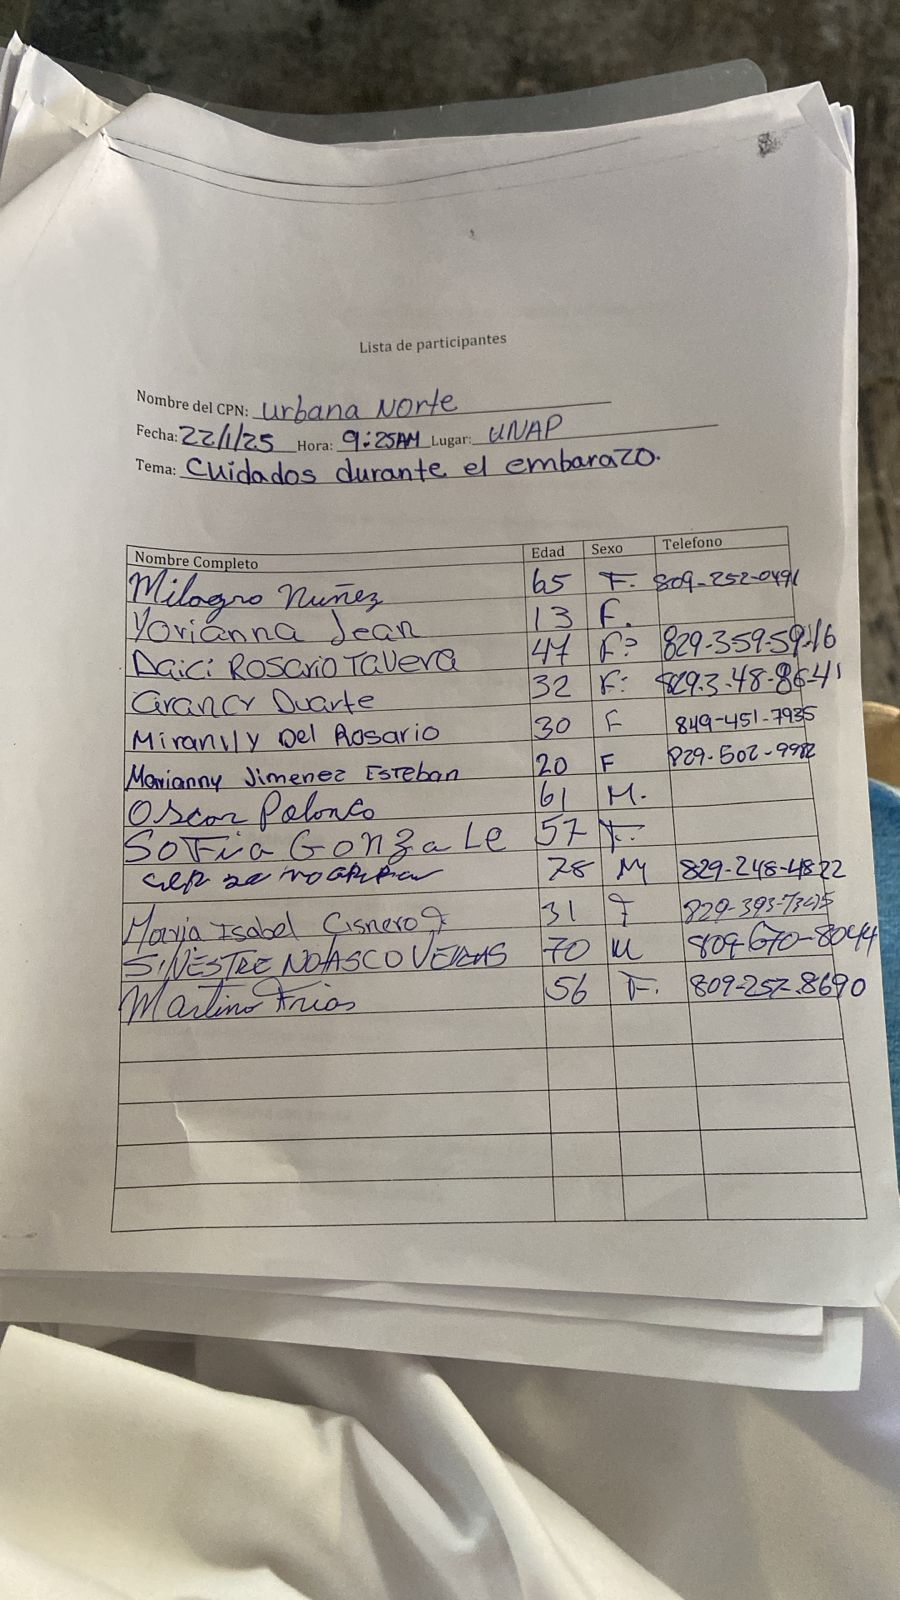 Lista de participantes
Nombre del CPN: Urbana Norte
Fecha: 22/1/25 Hora: 9:25AM Lugar: UNAP
Tema: Cuidados durante el embarazo.
Nombre Completo Edad Sexo Telefono
Milagro Nuñez 65 F. 809-252-0491
Yorianna Jean 13 F.
Daici Rosario Tavera 47 F. 829-359-5916
Duarte 32 F. 829-3-48-8641
Del Rosario 30 F 849-451-7935
Marianny Jimenez Esteban 20 F 829-502-9982
Oscar Polanco 61 M.
SoFia Gonzale 57 F.
78 M 829-248-4822
Maria Isabel Cisnero 31 F
SilVESTRE NOlASCO 70 M 809-670-8044
Martina Frias 56 F. 809-257-8690